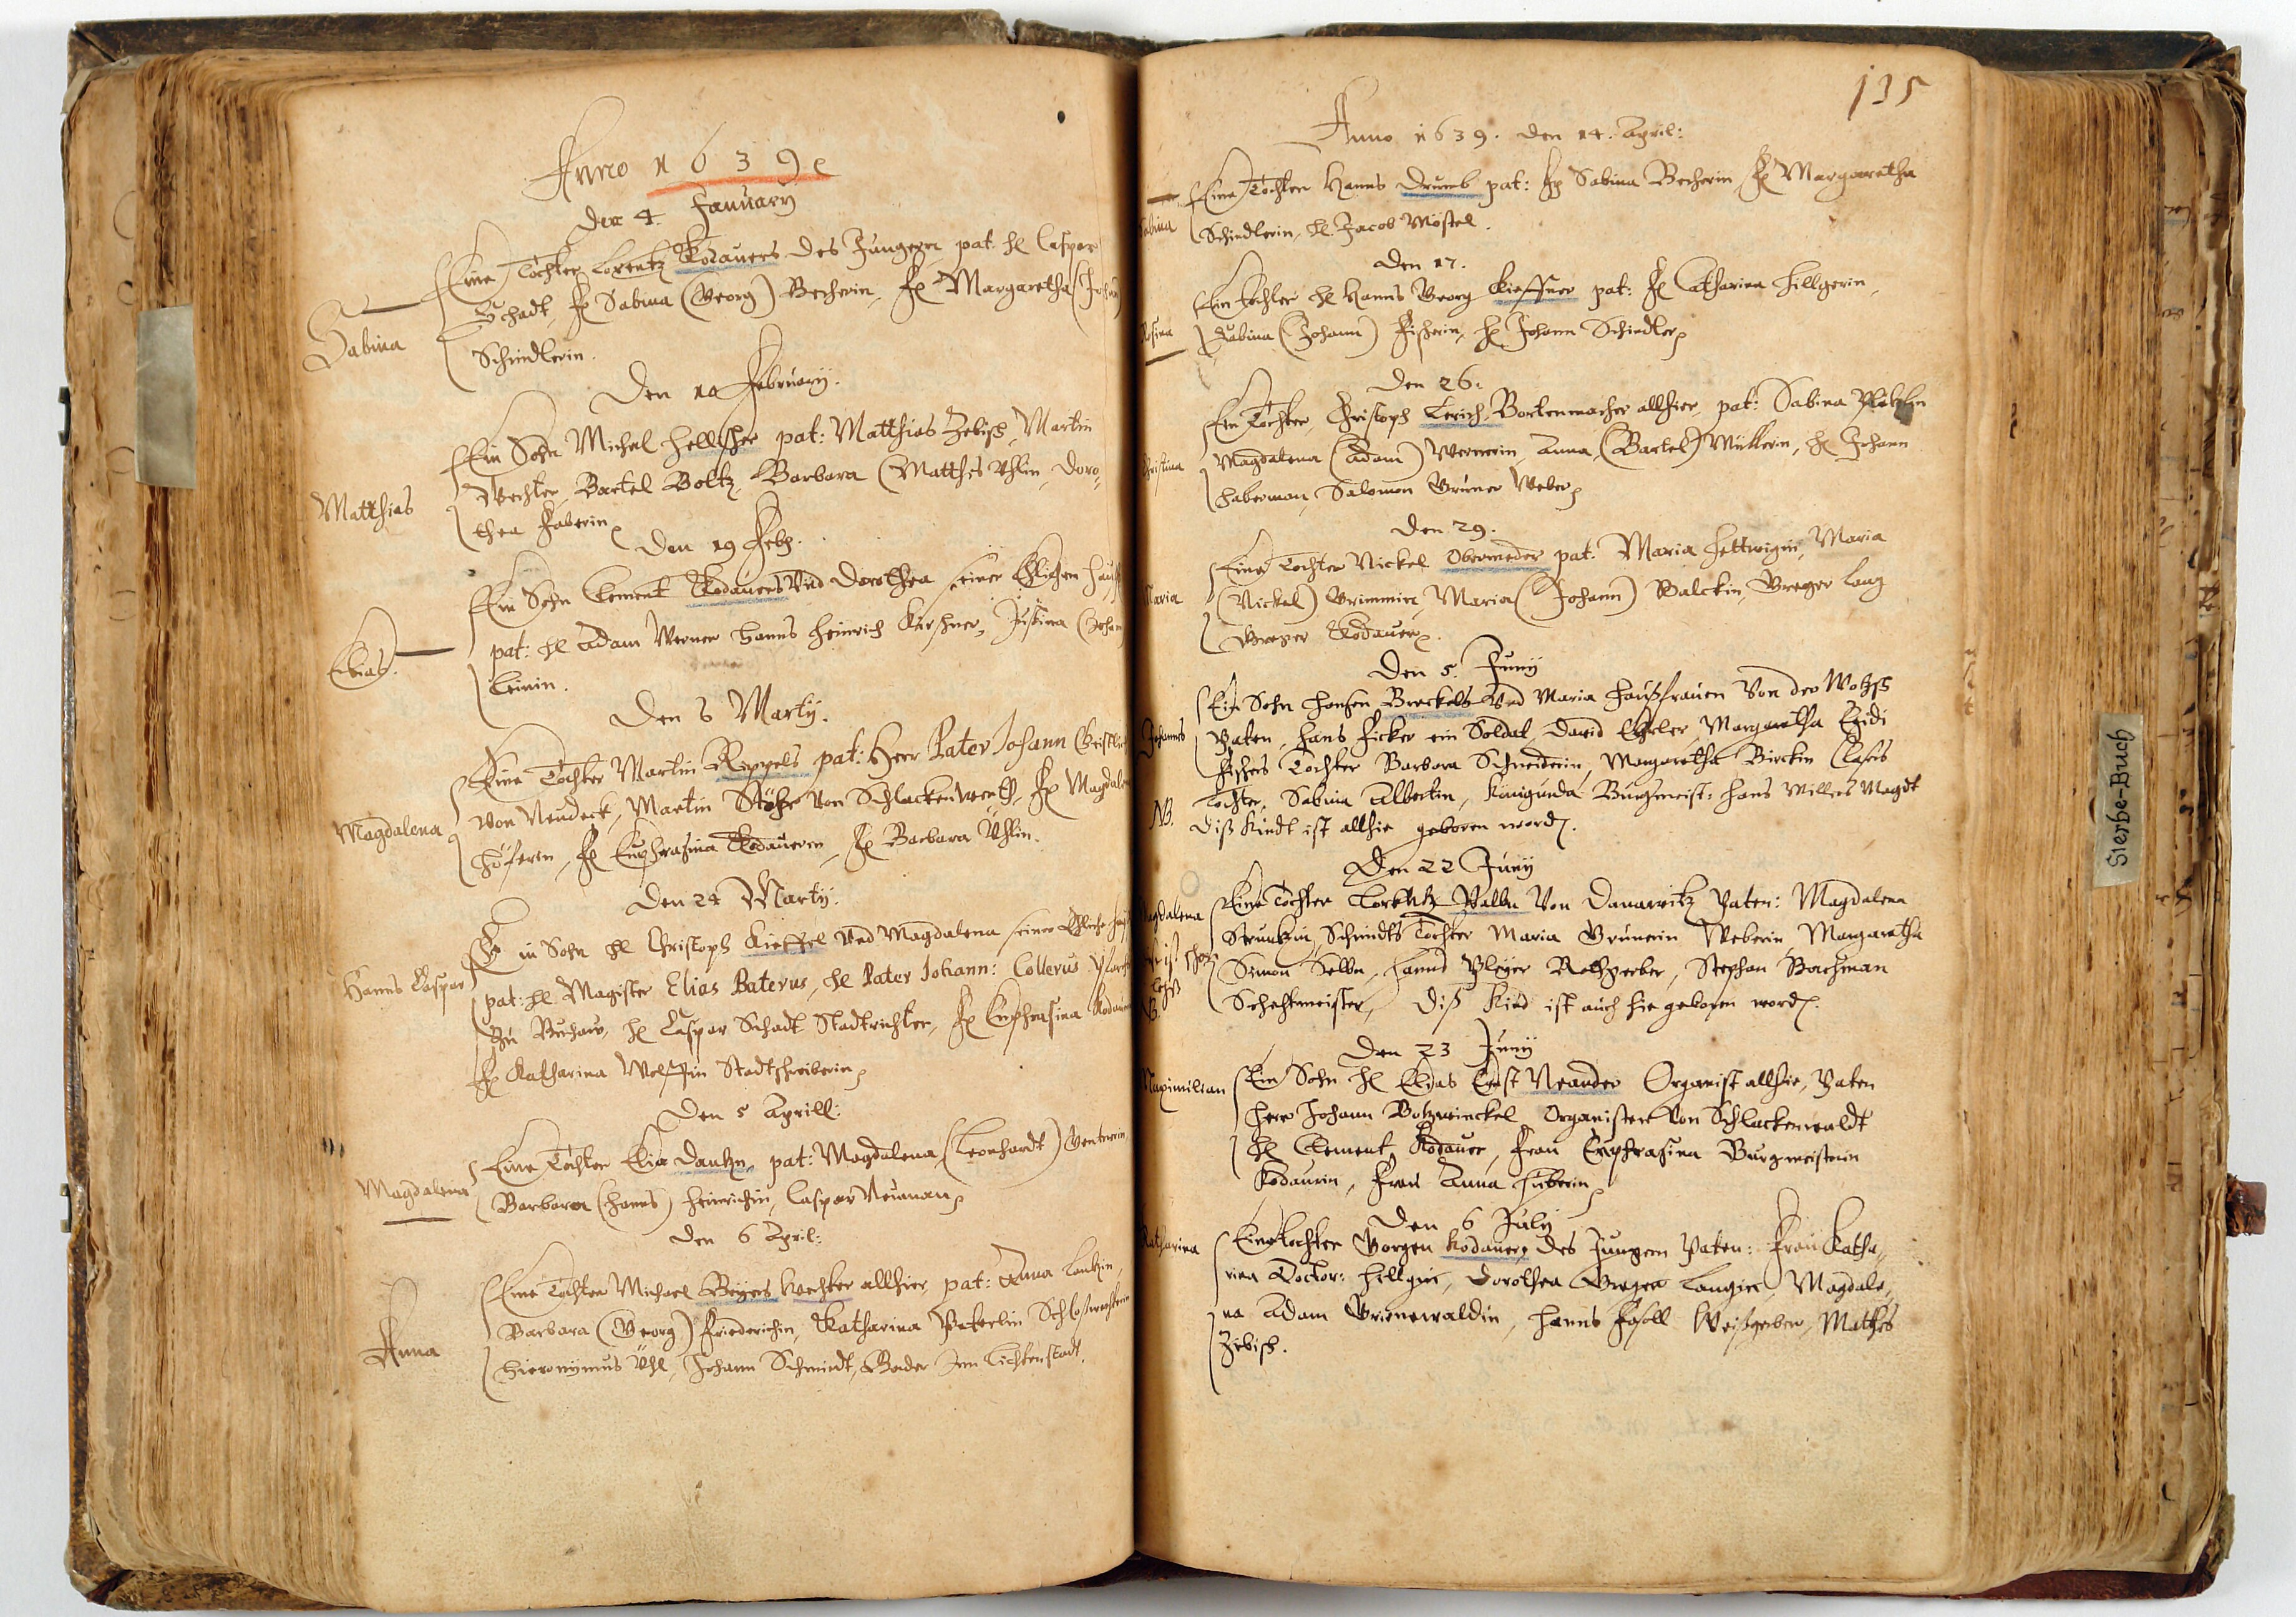 Anno 1639
Den 4. January
Sabina
Eine Tochter Lorentz Kodauers des Jungern pat: H. Caspar
Schadt, Fr. Sabina (Georg) Becherin, Fr. Margaretha (Johann)
Schindlerin.
Den 10 February.
Matthias
Ein Sohn Michel pat: Matthias Zebisch, Martin
Wechter, Bartel Boltz Barbara (Matthes Uhlin, Doro-
thea Faberin
Den 19 Feb.
Elias.
Ein Sohn Clement Kodauers Und Dorothea seiner Ehlichen
pat: H. Adam Werner Hanns Heinrich Kürschner, Justina (Johan)
Leinin.
Den 8 Marty.
Magdalena
Eine Tochter Martin Rippels pat: Herr Pater Johann
Von Neudeck, Martin Stöhr Von Schlackenwerth, Fr. Magdalen
Höferin, Fr. Euphrasina Kodauerin, Fr. Barbara Uhlin.
Den 24 Marty.
Hanns Caspar
Ein Sohn H. Christoph Kieffel Und Magdalena seiner Ehliche
pat: H. Magister Elias Paterus, H. Pater Johann: Collerus
Zu Buchaw, H. Caspar Schadt Stadtrichter, Fr. Euphrasina
Fr. Katharina Wolffin Stadtschreiberin
Den 5 Aprill:
Magdalena
Eine Tochter Elia Dankn, pat: Magdalena (Leonhardt)
Barbara (Hanns) Heinrichin, Caspar Neuman
Den 6 April:
Anna
Eine Tochter Michael Beyers Wechter allhier, pat: Anna
Barbara (Georg) Friederichin, Katharina Peterlin
Hieronymus Uhl, Johann Schmidt, Bader Inn Lichtenstadt.
135
Anno 1639. Den 14. April:
Sabina
Eine Tochter Hanns Drumb pat: Fr. Sabina Becherin Fr. Margaretha
Schindlerin, H. Jacob Möstel.
Den 17.
Rosina
Ein Tochter H. Hanns Georg Kieffner pat: Fr. Catharina Hillgerin,
Sabina (Johann) Fischerin, H. Johann Schindler
Den 26.
Christina
Ein Tochter, Christoph Lerich Bortenmacher allhier, pat: Sabina
Magdalena (Adam) Wernerin Anna, (Bartel) Müllerin, H. Johann
Haberman, Salomon Grüner Weber
Den 29.
Maria
Eine Tochter Nickel Obermeder pat: Maria Hettwigin, Maria
(Nickel) Grimmin, Maria (Johann) Balckin, Greger Lang
Kodauer.
Den 5. Juny
Johannes
Ein Sohn Hansen Breckels Und Maria Haußfrauen Von der
Paten, Hans Ficker ein Soldat, David Ehrler, Margaretha Egidi
Fischers Tochter Barbara Schneiderin, Margaretha Birckin
Tochter, Sabina Albertin, Kunigunda Burgmeist: Hans Millers Magdt
NB.
Diß Kindt ist allhie geboren word.
Den 22 Juny
Magdalena
Eine Tochter Lorentz Palln Von Danawitz Paten: Magdalena
Schmidts Tochter Maria Grünerin Weberin, Margaretha
Simon Hanns Rothgerber, Stephan Bachman
Diß Kind ist auch hie geboren word.
Den 23 Juny
Maximilian
Ein Sohn H. Elias Ernst Neander Organist allhie, Paten
Herr Johann Organisten Von Schlackenwaldt
H. Clement Kodauer, Frau Euphrasina Burgmeisterin
Kodaurin, Frau Anna Huberin
Den 6 July
Katharina
Eine Tochter Görgen Kodauer des Jungern Paten: Frau Katha-
rina Doctor: Hillgerin, Dorothea Greger Langin, Magdale-
na Adam Grünewaldin, Hanns Weißgerber, Mathes
Zebisch.
Sterbe-Buch